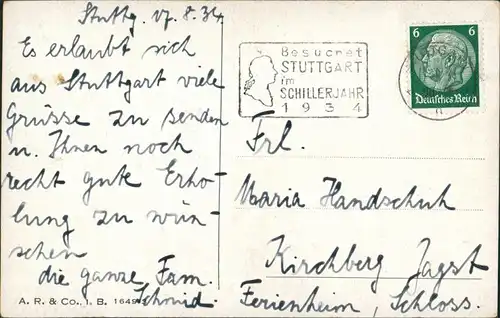 Stuttg. 17.8.34
Es erlaubt sich
aus Stuttgart viele
Grüsse zu senden
u. Ihnen noch
recht gute Erho-
lung zu wün-
schen
die ganze Fam.
Schmid.
A. R. & Co., i. B.
Besuchet
STUTTGART
im
SCHILLERJAHR
1934
6 6
Deutsches Reich
Frl.
Maria Handschuh
Kirchberg Jagst
Ferienheim, Schloss.